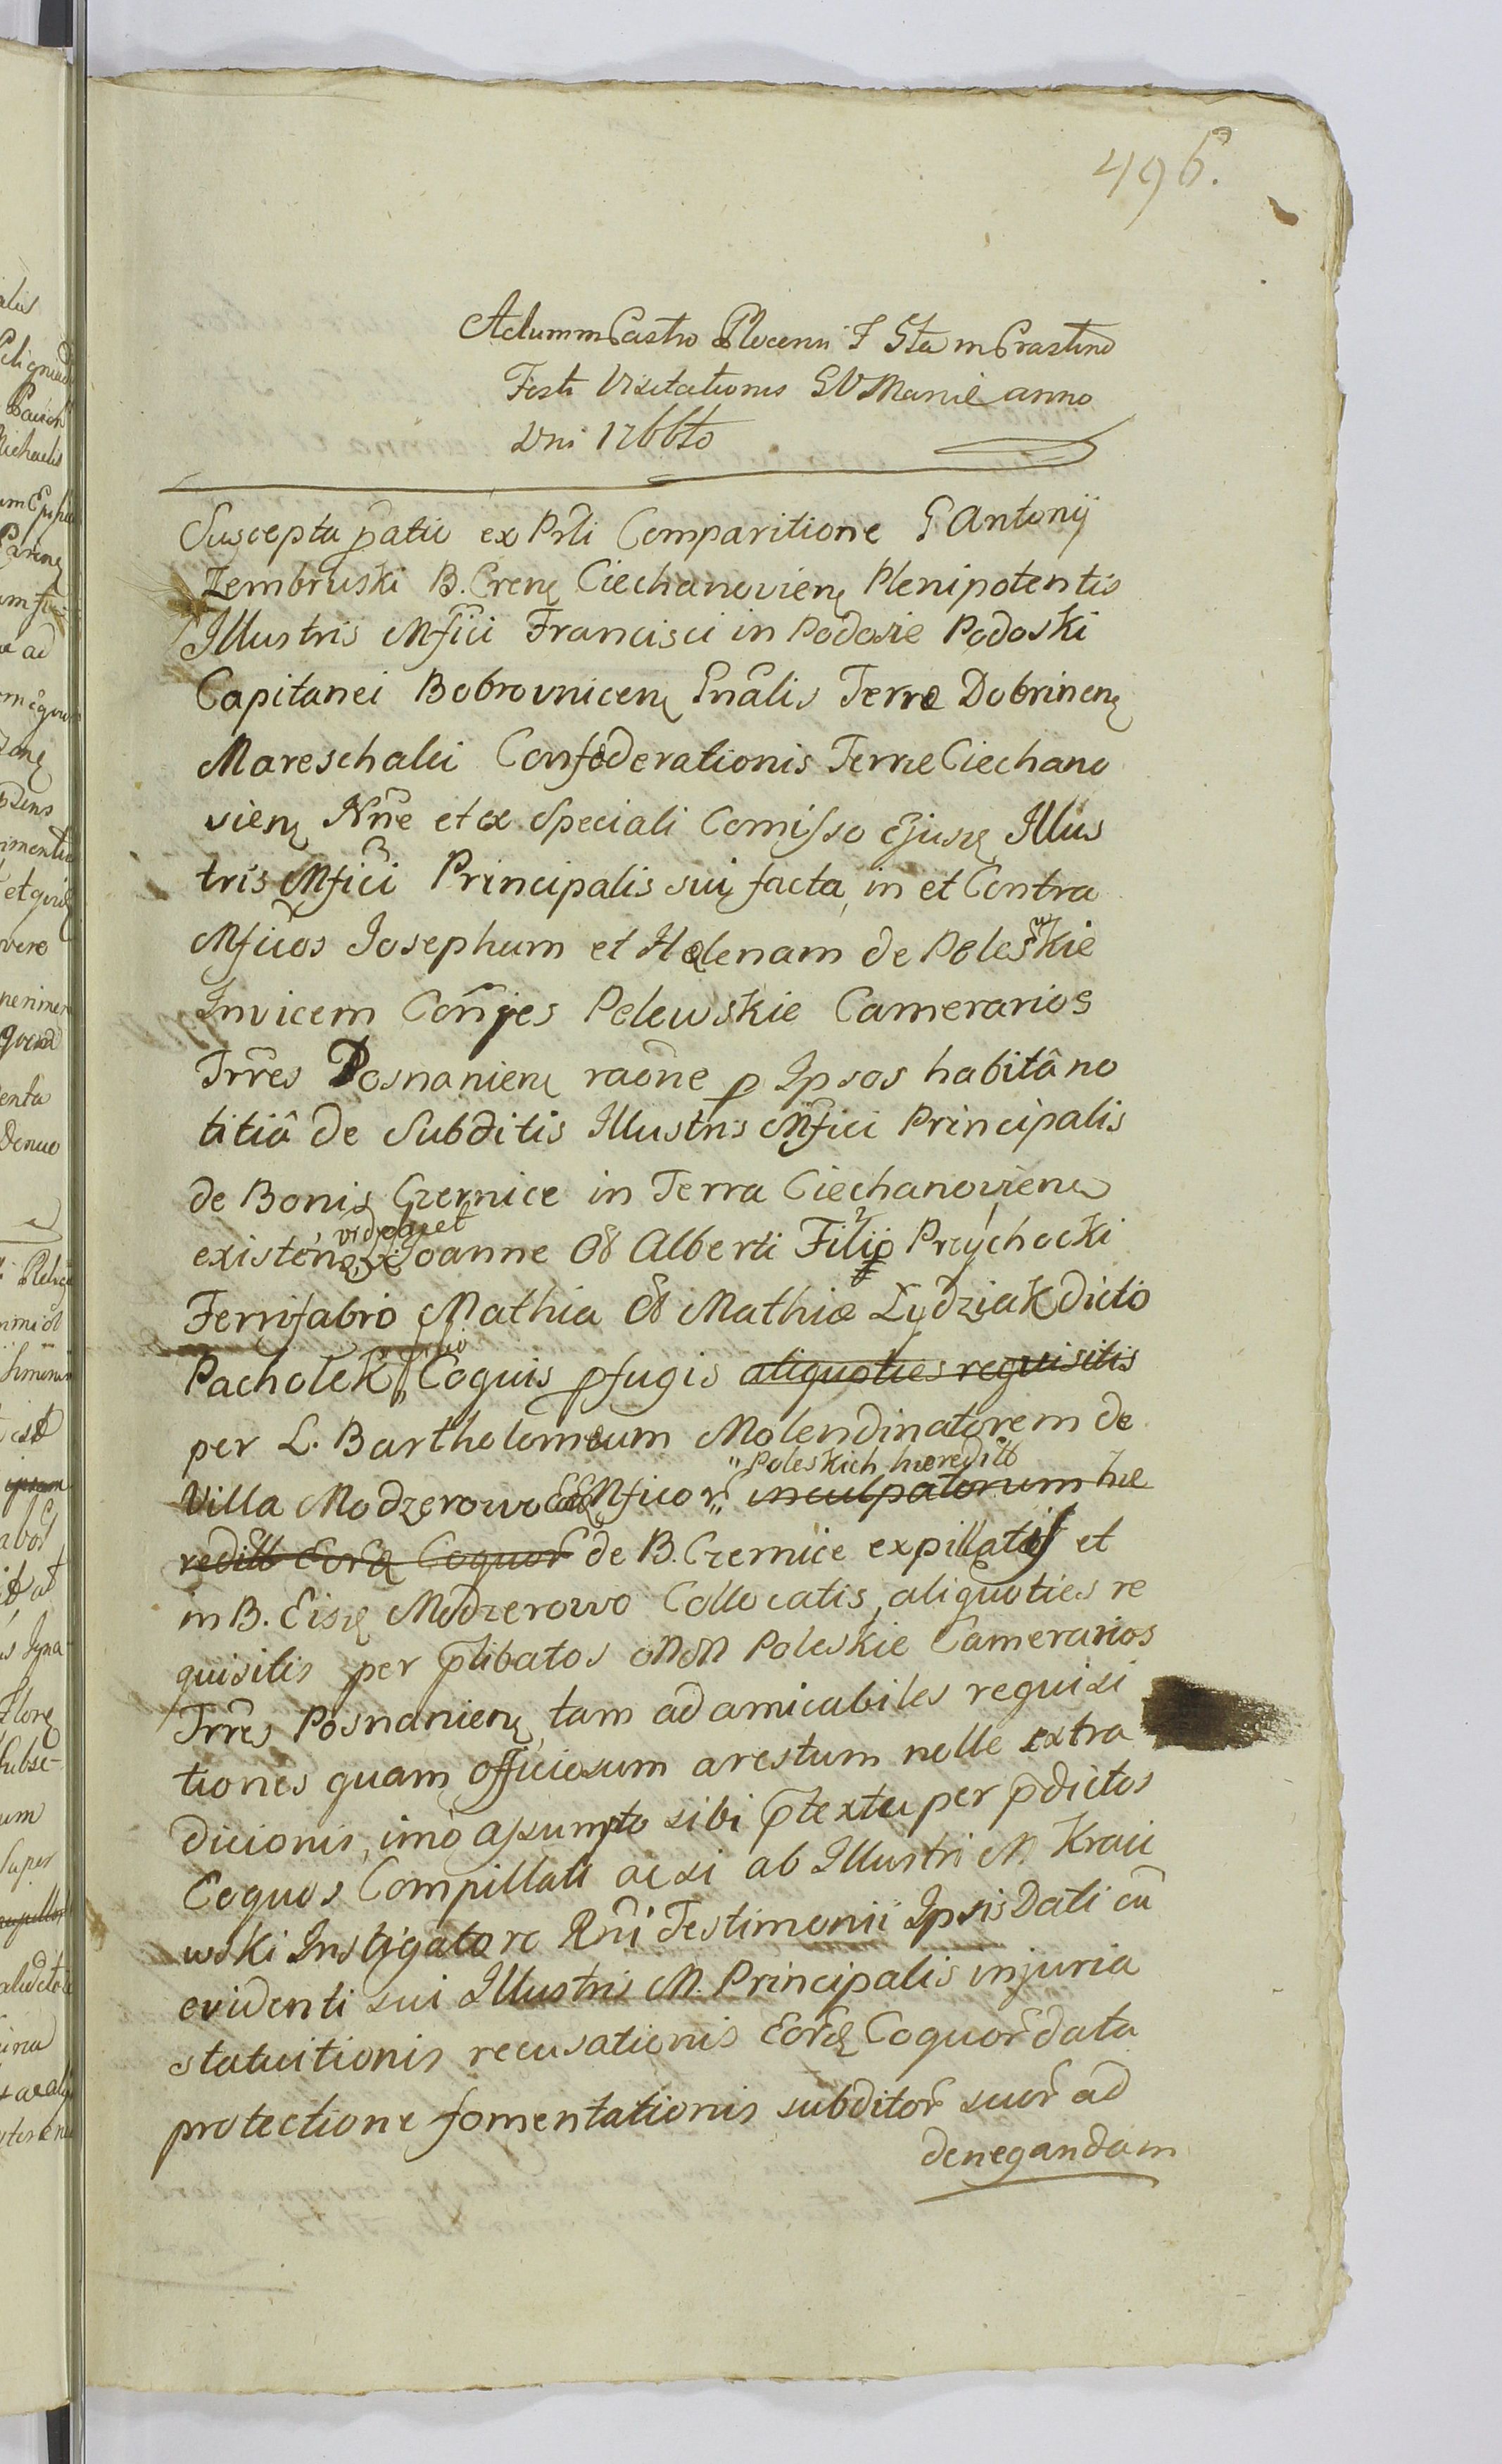 496.
Actum in Castro Plocensi F 5ta in Crastino
Festi Visitationis BVMariæ anno
Dni 1766to
Suscepta p̄atii ex Prli Comparitione G Antonij
Zembruski B. Crenę Ciechanovienę Plenipotentis
Illustris Mfici Francisci in Podosie Podoski
Capitanei Bobrovnicenę Gnãlis Terræ Dobrinenę
Mareschalci Confœderationis Terræ Ciechano
vienę Nñe et ex Speciali Comisso Ejusdę Illus
tris Mfici Principalis sui facta, in et Contra
Mficos Josephum et Helenam de Poleskie
Invicem Conjes Polewskie Camerarios
Trres Posnanienę raõne p Ipsos habitâ no
titiâ de Subditis Illustris Mfici Principalis
de Bonis Czernice in Terra Ciechanovienę
videlicet
existenę, Joanne Alberti Filio Przychocki
Ferrifabro Mathia Mathiæ Łydziak dicto
filio
Pacholek Coquis pfugis aliquoties requisitis
per L. Bartholomeum Molendinatorem de
" Poleskich hæreditt
Villa Modzerowo Mficor " inculpatorum hæ
reditt Eorę Coquor̃ de B. Czernice expillatis et
in B. Eisdę Modzerowo Collocatis, aliquoties re
quisitis per p̄libatos MM Poleskie Camerarios
Trres Posnanienę, tam ad amicabiles requisi
tiones quam officiosum arestum nolle extra
dicionis, imo assumpto sibi p̄textu per p̄dictos
Coquos Compillati ac si ab Illustri M. Kraie
wski Instigatore Rni Testimonii Ipsis Dati cũ
evidenti sui Illustris M. Principalis injuria
statuitionis recusationis Eorę Coquor̃ data
protectione fomentationis subditor̃ suor̃ ad
denegandam